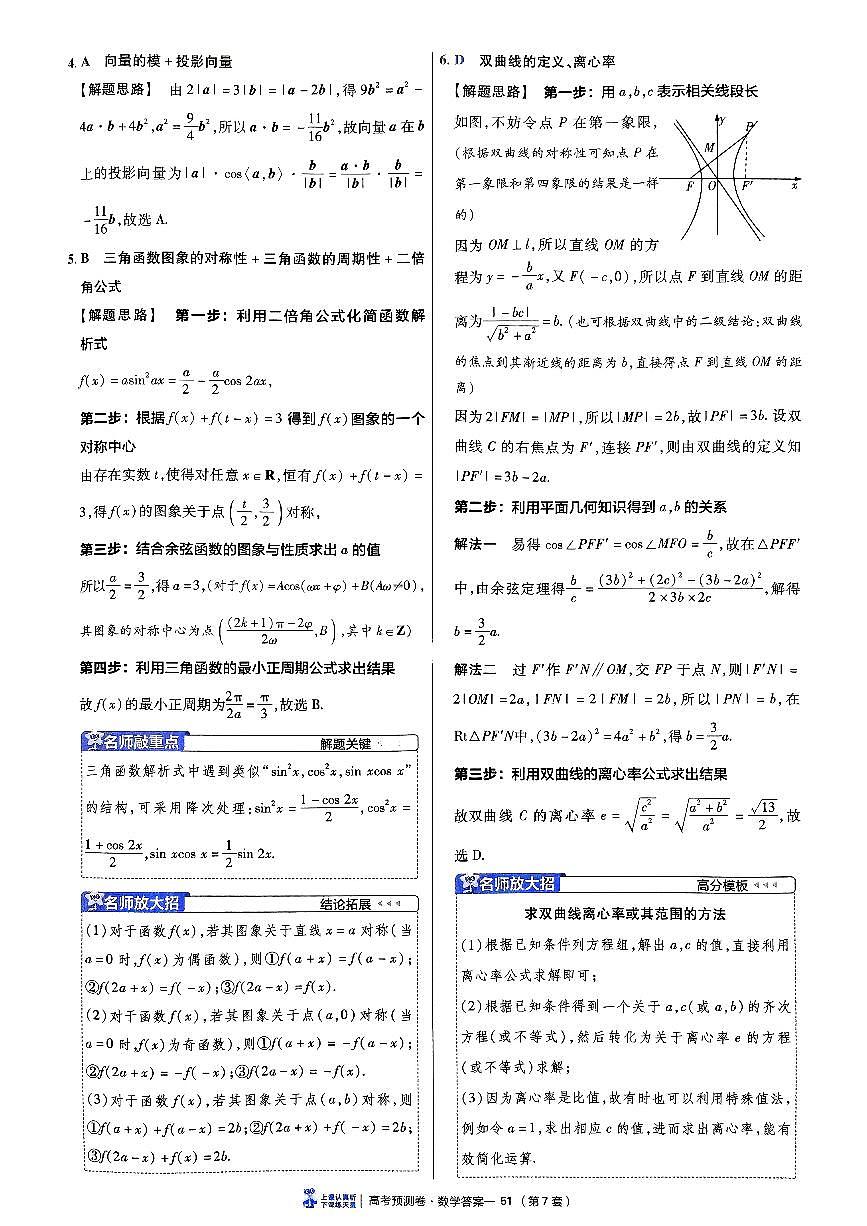 4. A 向量的模 + 投影向量
【解题思路】 由 2|a| = 3|b| = |a - 2b|,得 9b² = a² -
4a·b + 4b²,a² = 9/4 b²,所以 a·b = - 11/16 b²,故向量 a 在 b
上的投影向量为 |a| · cos⟨a,b⟩ · b/|b| = a·b/|b| · b/|b| =
- 11/16 b,故选 A.
5. B 三角函数图象的对称性 + 三角函数的周期性 + 二倍
角公式
【解题思路】 第一步：利用二倍角公式化简函数解
析式
f(x) = asin²ax = a/2 - a/2 cos 2ax,
第二步：根据 f(x) + f(t - x) = 3 得到 f(x) 图象的一个
对称中心
由存在实数 t,使得对任意 x∈R,恒有 f(x) + f(t - x) =
3,得 f(x) 的图象关于点 (t/2, 3/2) 对称,
第三步：结合余弦函数的图象与性质求出 a 的值
所以 a/2 = 3/2,得 a = 3,(对于 f(x) = Acos(ωx + φ) + B(Aω≠0),
其图象的对称中心为点 (((2k+1)π - 2φ)/2ω, B),其中 k∈Z)
第四步：利用三角函数的最小正周期公式求出结果
故 f(x) 的最小正周期为 2π/2a = π/3,故选 B.
名师敲重点 解题关键
三角函数解析式中遇到类似“sin²x,cos²x,sin xcos x”
的结构,可采用降次处理:sin²x = (1 - cos 2x)/2,cos²x =
(1 + cos 2x)/2,sin xcos x = 1/2 sin 2x.
名师放大招 结论拓展
(1)对于函数 f(x),若其图象关于直线 x = a 对称(当
a = 0 时,f(x) 为偶函数),则①f(a + x) = f(a - x);
②f(2a + x) = f( - x);③f(2a - x) = f(x).
(2)对于函数 f(x),若其图象关于点(a,0)对称(当
a = 0 时,f(x) 为奇函数),则①f(a + x) = -f(a - x);
②f(2a + x) = -f( - x);③f(2a - x) = -f(x).
(3)对于函数 f(x),若其图象关于点(a,b)对称,则
①f(a + x) + f(a - x) = 2b;②f(2a + x) + f( - x) = 2b;
③f(2a - x) + f(x) = 2b.
6. D 双曲线的定义、离心率
【解题思路】 第一步：用 a,b,c 表示相关线段长
如图,不妨令点 P 在第一象限,
(根据双曲线的对称性可知点 P 在
第一象限和第四象限的结果是一样
的)
y
P
M
F O F' x
因为 OM⊥l,所以直线 OM 的方
程为 y = - b/a x,又 F( - c,0),所以点 F 到直线 OM 的距
离为 |-bc|/√(b² + a²) = b.(也可根据双曲线中的二级结论:双曲线
的焦点到其渐近线的距离为 b,直接得点 F 到直线 OM 的距
离)
因为 2|FM| = |MP|,所以 |MP| = 2b,故 |PF| = 3b. 设双
曲线 C 的右焦点为 F',连接 PF',则由双曲线的定义知
|PF'| = 3b - 2a.
第二步：利用平面几何知识得到 a,b 的关系
解法一 易得 cos∠PFF' = cos∠MFO = b/c,故在△PFF'
中,由余弦定理得 b/c = ((3b)² + (2c)² - (3b - 2a)²)/(2×3b×2c),解得
b = 3/2 a.
解法二 过 F' 作 F'N∥OM,交 FP 于点 N,则 |F'N| =
2|OM| = 2a,|FN| = 2|FM| = 2b,所以 |PN| = b,在
Rt△PF'N 中,(3b - 2a)² = 4a² + b²,得 b = 3/2 a.
第三步：利用双曲线的离心率公式求出结果
故双曲线 C 的离心率 e = √(c²/a²) = √((a² + b²)/a²) = √13/2,故
选 D.
名师放大招 高分模板
求双曲线离心率或其范围的方法
(1)根据已知条件列方程组,解出 a,c 的值,直接利用
离心率公式求解即可;
(2)根据已知条件得到一个关于 a,c(或 a,b)的齐次
方程(或不等式),然后转化为关于离心率 e 的方程
(或不等式)求解;
(3)因为离心率是比值,故有时也可以利用特殊值法,
例如令 a = 1,求出相应 c 的值,进而求出离心率,能有
效简化运算.
上课认真听
下课练天星
高考预测卷·数学答案— 51 (第 7 套)